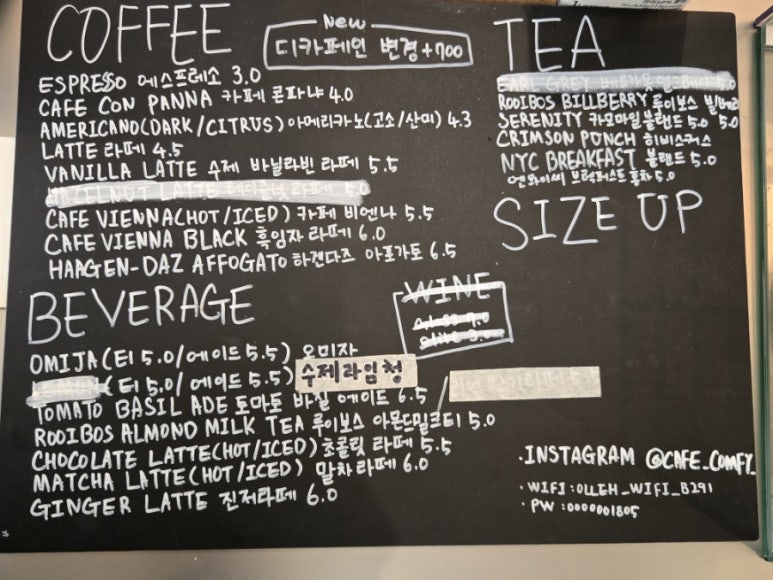 COFFEE
New
디카페인 변경 +700
ESPRESSO 에스프레소 3.0
CAFE CON PANNA 카페 콘파냐 4.0
AMERICANO(DARK/CITRUS) 아메리카노(고소/산미) 4.3
LATTE 라떼 4.5
VANILLA LATTE 수제 바닐라빈 라떼 5.5
HAZELNUT LATTE 헤이즐넛 라떼 5.0
CAFE VIENNA(HOT/ICED) 카페 비엔나 5.5
CAFE VIENNA BLACK 흑임자 라떼 6.0
HAAGEN-DAZ AFFOGATO 하겐다즈 아포가토 6.5
TEA
EARL GREY 5.0
ROOIBOS BILLBERRY 루이보스 빌베리
SERENITY 카모마일 블랜드 5.0 5.0
CRIMSON PUNCH 히비스커스
NYC BREAKFAST 블랜드 5.0
엔와이씨 브렉퍼스트 홍차 5.0
SIZE UP
BEVERAGE
WINE
OMIJA(티 5.0/에이드 5.5) 오미자
(티 5.0/에이드 5.5) 수제라임청
TOMATO BASIL ADE 토마토 바질 에이드 6.5
ROOIBOS ALMOND MILK TEA 루이보스 아몬드밀크티 5.0
CHOCOLATE LATTE(HOT/ICED) 초콜릿 라떼 5.5
MATCHA LATTE(HOT/ICED) 말차라떼 6.0
GINGER LATTE 진저라떼 6.0
·INSTAGRAM @CAFE_COMFY_
·WIFI:OLLEH_WIFI_B291
·PW:0000001805